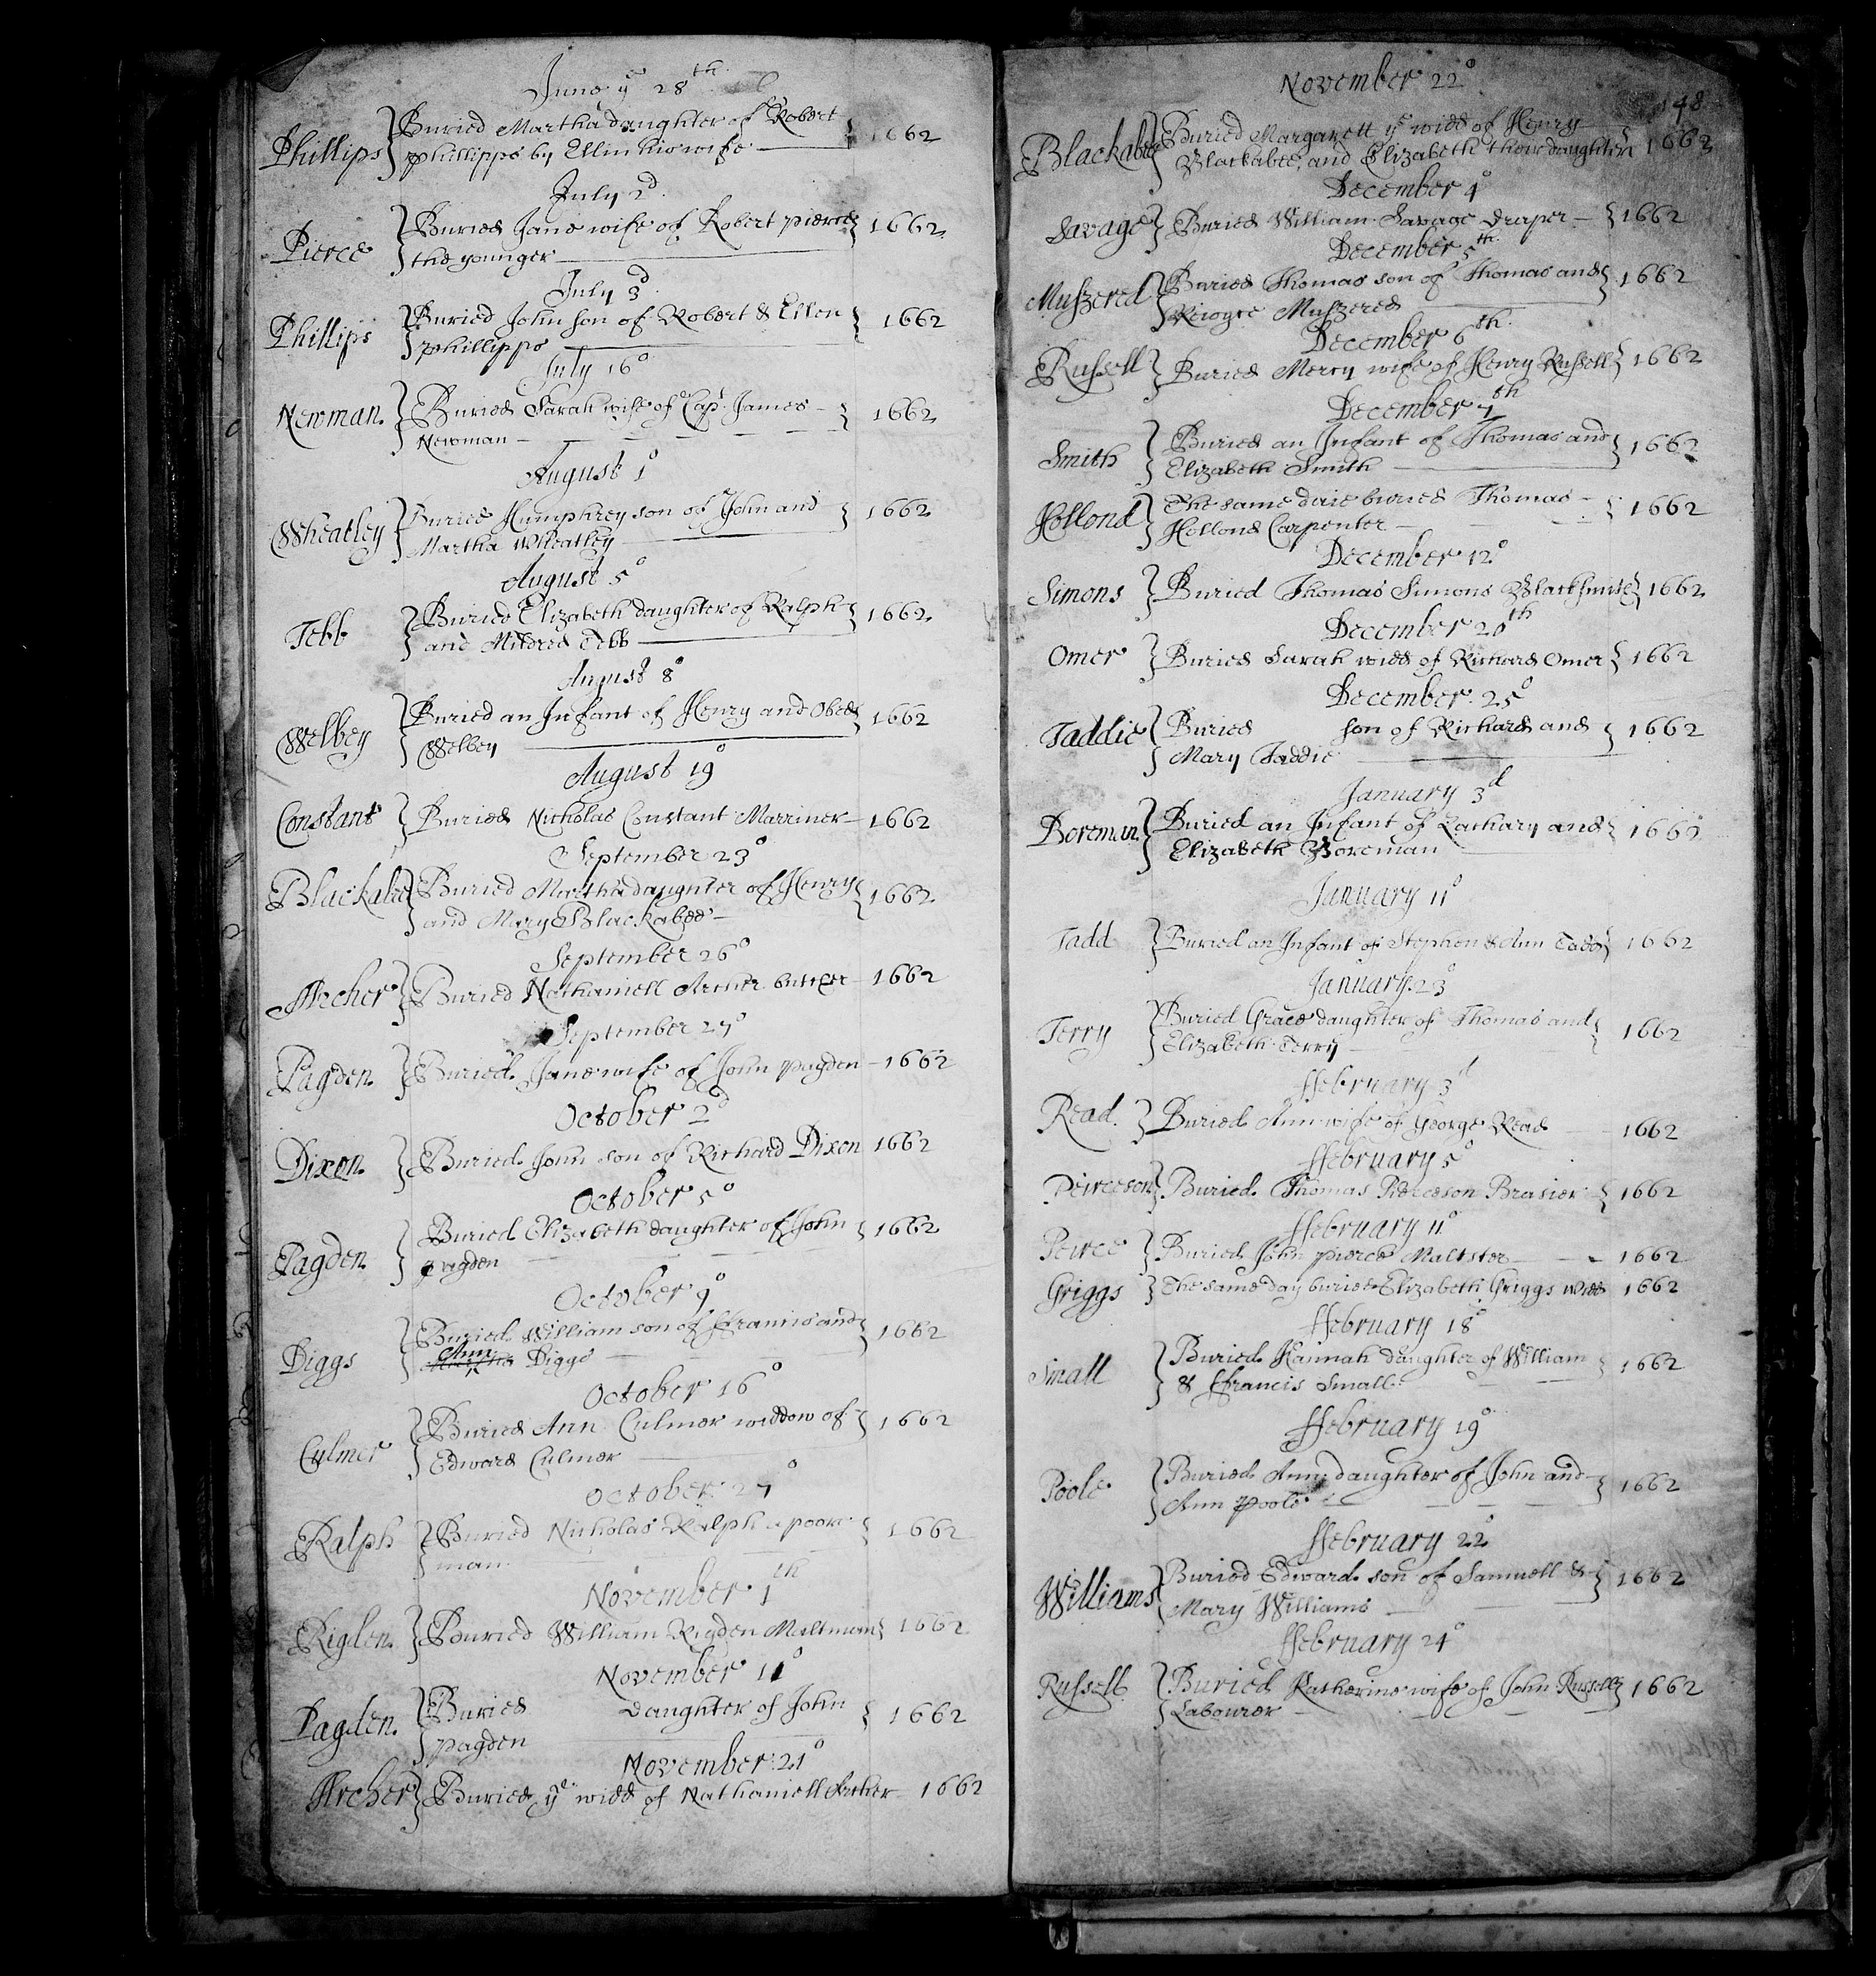 June ye 28th
Phillips } Buried Martha daughter of Robert } 1662
phillipps by Ellin his wife
July 2d
Pierce } Buried Jane wife of Robert pierce } 1662
the younger
July 3d
Phillips } Buried John son of Robert & Ellen } 1662
phillipps
July 16o
Newman. } Buried Sarah wife of Capt. James } 1662
Newman
August 1o
Wheatley } Buried Humphrey son of John and } 1662
Martha Wheatley
August 5o
Tebb } Buried Elizabeth daughter of Ralph } 1662
and Mildred Tebb
August 8o
Welbey } Buried an Infant of Henry and Obed } 1662
Welbey
August 19o
Constant } Buried Nicholas Constant Marriner 1662
September 23o
Blackabee } Buried Martha daughter of Henry } 1662
and Mary Blackabee
September 26o
Archer } Buried Nathaniell Archer butcher 1662
September 27o
Pagden. } Buried Jane wife of John pagden 1662
October 2d
Dixon. } Buried John son of Richard Dixon 1662
October 5o
Pagden. } Buried Elizabeth daughter of John } 1662
pagden
October 9o
Diggs } Buried William son of ffrancis and } 1662
Ann Diggs
October 16o
Culmer } Buried Ann Culmer widdow of } 1662
Edward Culmer
October 27o
Ralph } Buried Nicholas Ralph a poore } 1662
man.
November 1th
Rigden. } Buried William Rigden Maltman } 1662
November 11o
Pagden. } Buried daughter of John } 1662
pagden
November 21o
Archer } Buried ye widd of Nathaniell Archer 1662
November 22o
148
Blackabee } Buried Margarett ye widd of Henry } 1662
Blackabee, and Elizabeth their daughter
December 4o
Savage } Buried William Savage Draper } 1662
December 5th
Muszered } Buried Thomas son of Thomas and } 1662
Muszered
December 6th
Russell } Buried Mercy wife of Henry Russell } 1662
December 7th
Smith } Buried an Infant of Thomas and } 1662
Elizabeth Smith
Hollond } The same daie buried Thomas } 1662
Hollond Carpenter
December 12o
Simons } Buried Thomas Simons Blacksmith } 1662
December 20th
Omer } Buried Sarah widd of Richard Omer } 1662
December 25o
Taddie } Buried son of Richard and } 1662
Mary Taddie
January 3d
Boreman } Buried an Infant of Zachary and } 1662
Elizabeth Boreman
January 11o
Tadd } Buried an Infant of Stephen & Ann Tadd } 1662
January 23o
Terry } Buried Grace daughter of Thomas and } 1662
Elizabeth Terry
ffebruary 3d
Read. } Buried Ann wife of George Read 1662
ffebruary 5o
Peirceson } Buried Thomas Pierceson Brasier } 1662
ffebruary 11o
Peirce } Buried John pierce Maltster 1662
Griggs } The same day buried Elizabeth Griggs widd 1662
ffebruary 18o
Small } Buried Hannah daughter of William } 1662
& ffrancis Small
ffebruary 19o
Poole } Buried Ann daughter of John and } 1662
Ann Poole
ffebruary 22o
Williams } Buried Edward son of Samuell & } 1662
Mary Williams
ffebruary 24o
Russell } Buried Katherine wife of John Russell } 1662
Labourer